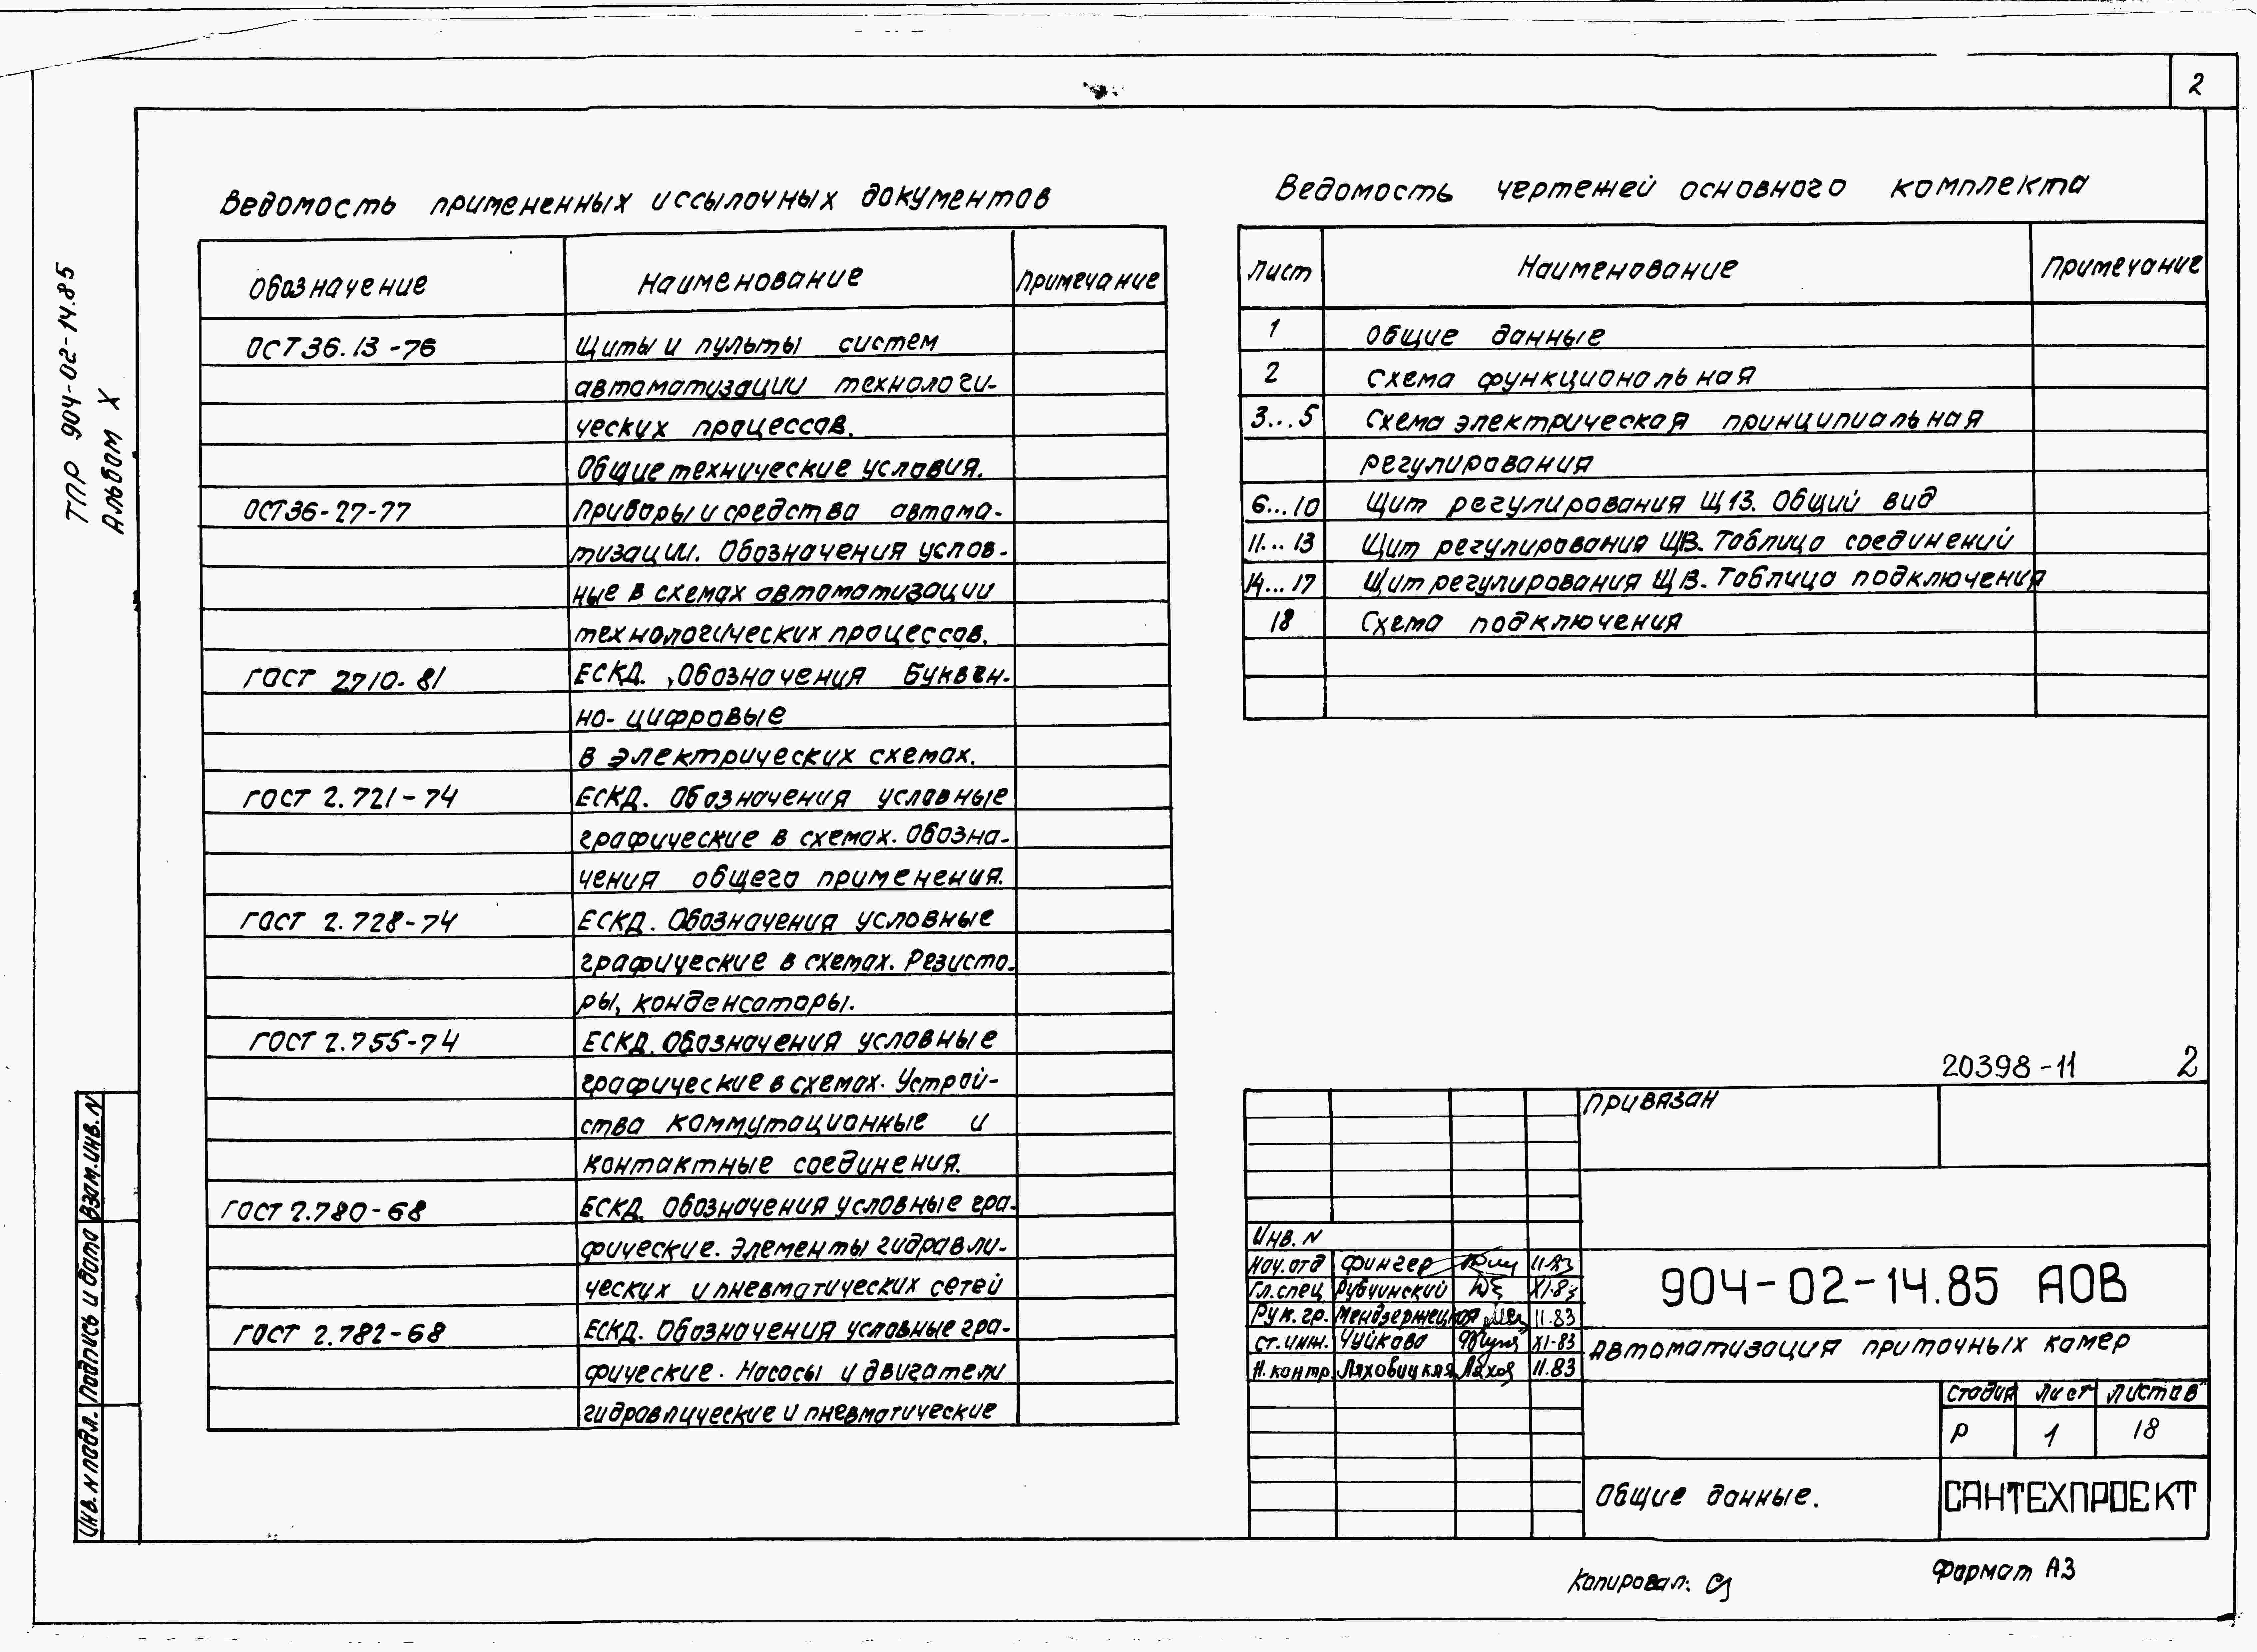 2
ТПР 904-02-14.85
Альбом X
Ведомость примененных и ссылочных документов
Обозначение Наименование Примечание
ОСТ 36.13-76 Щиты и пульты систем
автоматизации технологи-
ческих процессов.
Общие технические условия.
ОСТ 36-27-77 Приборы и средства автома-
тизации. Обозначения услов-
ные в схемах автоматизации
технологических процессов.
ГОСТ 2.710-81 ЕСКД. Обозначения буквен-
но-цифровые
в электрических схемах.
ГОСТ 2.721-74 ЕСКД. Обозначения условные
графические в схемах. Обозна-
чения общего применения.
ГОСТ 2.728-74 ЕСКД. Обозначения условные
графические в схемах. Резисто-
ры, конденсаторы.
ГОСТ 2.755-74 ЕСКД. Обозначения условные
графические в схемах. Устрой-
ства коммутационные и
контактные соединения.
ГОСТ 2.780-68 ЕСКД. Обозначения условные гра-
фические. Элементы гидравли-
ческих и пневматических сетей
ГОСТ 2.782-68 ЕСКД. Обозначения условные гра-
фические. Насосы и двигатели
гидравлические и пневматические
Ведомость чертежей основного комплекта
Лист Наименование Примечание
1 Общие данные
2 Схема функциональная
3...5 Схема электрическая принципиальная
регулирования
6...10 Щит регулирования Щ13. Общий вид
11...13 Щит регулирования Щ13. Таблица соединений
14...17 Щит регулирования Щ13. Таблица подключения
18 Схема подключения
20398-11 2
Привязан
Инв. N
Нач. отд Фингер 11.83
Гл. спец. Рубчинский XI-83
Рук. гр. Мендзержецкая 11.83
Ст. инж. Чуйкова XI-83
Н. контр. Ляховицкая 11.83
904-02-14.85 АОВ
Автоматизация приточных камер
Стадия Лист Листов
Р 1 18
Общие данные.
САНТЕХПРОЕКТ
Инв. N подл. Подпись и дата Взам. инв. N
Копировал:
Формат А3